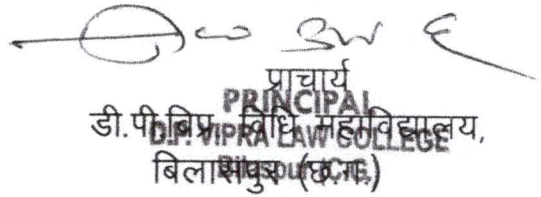 प्राचार्य
PRINCIPAL
डी.पी.विप्र विधि महाविद्यालय,
D.P. VIPRA LAW COLLEGE
बिलासपुर (छ.ग.)